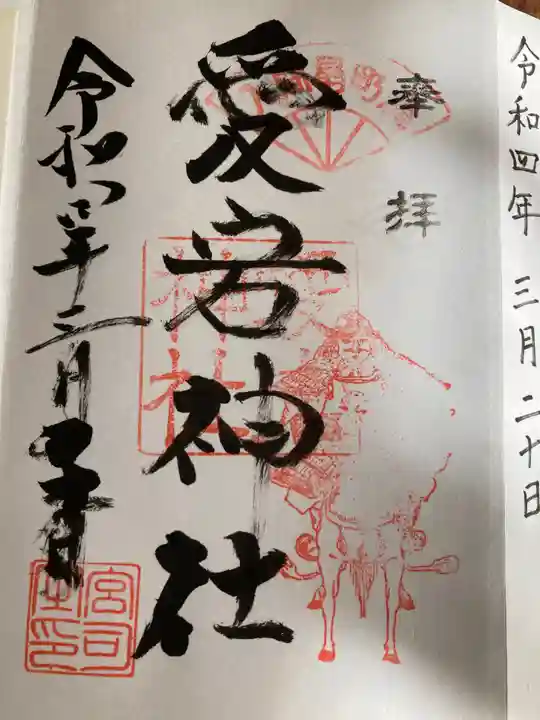 令和四年 三月二十日
奉拝
愛宕神社
神社
令和四年三月二十日
宮司之印